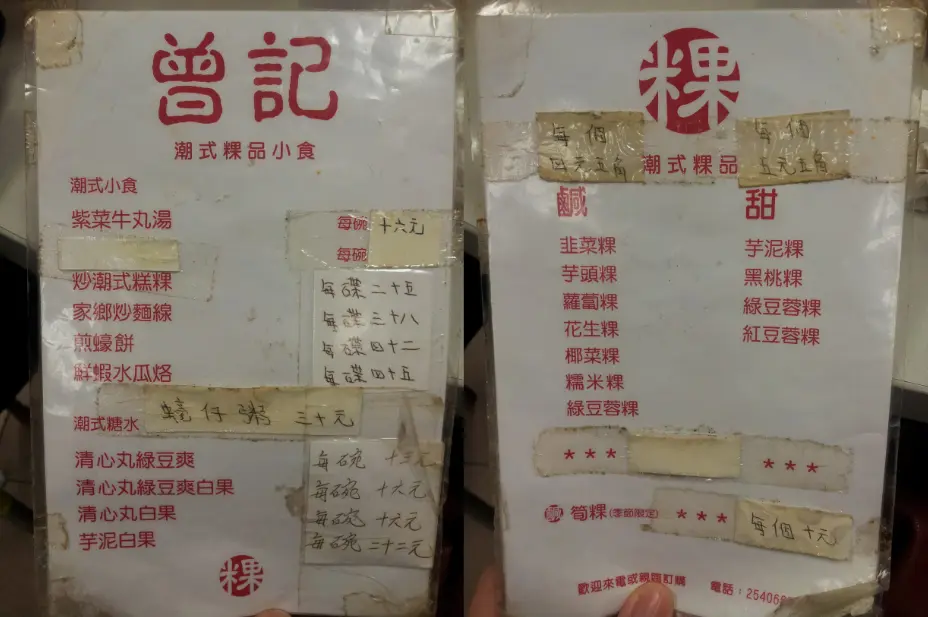 曾記
潮式粿品小食
潮式小食
紫菜牛丸湯 每碗 十六元
每碗
炒潮式糕粿 每碟 二十五
家鄉炒麵線 每碟 三十八
煎蠔餅 每碟 四十二
鮮蝦水瓜烙 每碟 四十五
蠔仔粥 三十元
潮式糖水
清心丸綠豆爽 每碗 十三元
清心丸綠豆爽白果 每碗 十六元
清心丸白果 每碗 十六元
芋泥白果 每碗 二十二元
粿
粿
每個 四元五角
潮式粿品
每個 五元五角
鹹
韭菜粿
芋頭粿
蘿蔔粿
花生粿
椰菜粿
糯米粿
綠豆蓉粿
甜
芋泥粿
黑桃粿
綠豆蓉粿
紅豆蓉粿
*** ***
鹹 筍粿(季節限定) *** 每個十元
歡迎來電或親臨訂購 電話:254066